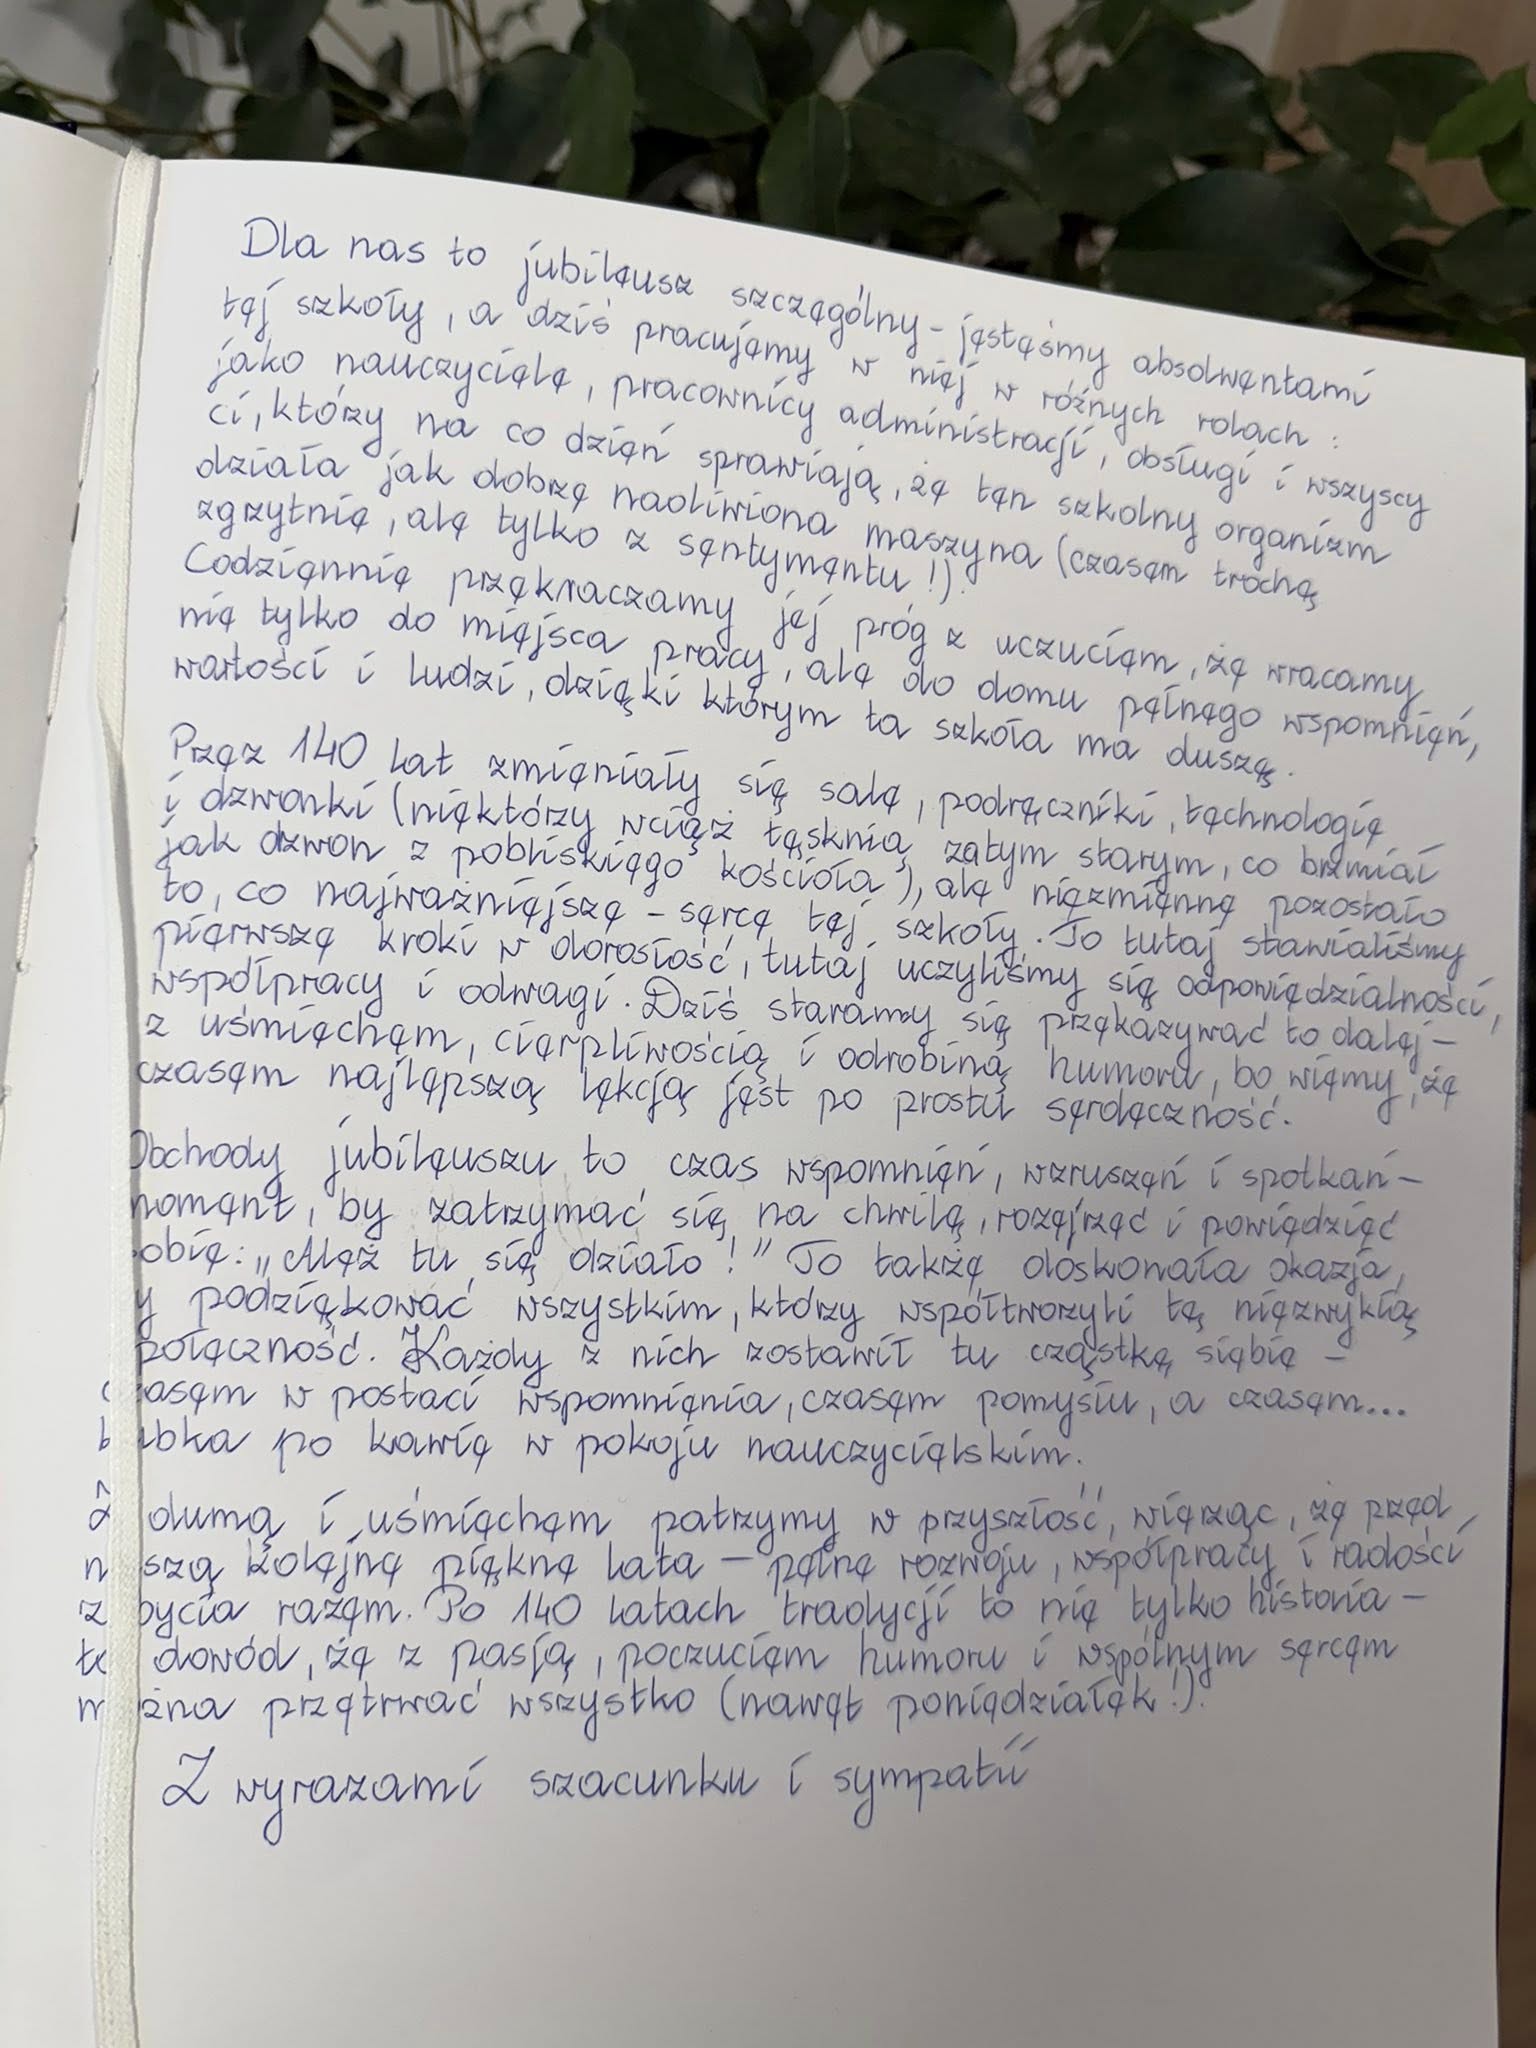 Dla nas to jubileusz szczególny - jesteśmy absolwentami
tej szkoły, a dziś pracujemy w niej w różnych rolach:
jako nauczyciele, pracownicy administracji, obsługi i wszyscy
ci, którzy na co dzień sprawiają, że ten szkolny organizm
działa jak dobrze naoliwiona maszyna (czasem trochę
zgrzytnie, ale tylko z sentymentu!).
Codziennie przekraczamy jej próg z uczuciem, że wracamy
nie tylko do miejsca pracy, ale do domu pełnego wspomnień,
wartości i ludzi, dzięki którym ta szkoła ma duszę.
Przez 140 lat zmieniały się sale, podręczniki, technologie
i dzwonki (niektórzy wciąż tęsknią za tym starym, co brzmiał
jak dzwon z pobliskiego kościoła), ale niezmienne pozostało
to, co najważniejsze - serce tej szkoły. To tutaj stawialiśmy
pierwsze kroki w dorosłość, tutaj uczyliśmy się odpowiedzialności,
współpracy i odwagi. Dziś staramy się przekazywać to dalej -
z uśmiechem, cierpliwością i odrobiną humoru, bo wiemy, że
czasem najlepszą lekcją jest po prostu serdeczność.
Obchody jubileuszu to czas wspomnień, wzruszeń i spotkań -
moment, by zatrzymać się na chwilę, rozejrzeć i powiedzieć
sobie: „Ależ tu się działo!" To także doskonała okazja,
y podziękować wszystkim, którzy współtworzyli tę niezwykłą
połeczność. Każdy z nich zostawił tu cząstkę siebie -
czasem w postaci wspomnienia, czasem pomysłu, a czasem...
kubka po kawie w pokoju nauczycielskim.
Z dumą i uśmiechem patrzymy w przyszłość, wierząc, że przed
naszą kolejne piękne lata - pełne rozwoju, współpracy i radości
z bycia razem. Po 140 latach tradycji to nie tylko historia -
to dowód, że z pasją, poczuciem humoru i wspólnym sercem
można przetrwać wszystko (nawet poniedziałek!).
Z wyrazami szacunku i sympatii